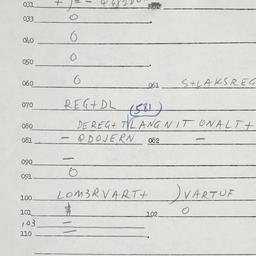 032
033 0
040 0
050 0
060 0 061 S+LAKSREG
070 REG+DL (581)
080 DEREG+ TLANGNIT ONALT+
081 - QDOJERN 082 -
090 -
091 0
100 LOM3RVART+ )VARTUF
101 # 102 0
103 -
110 -